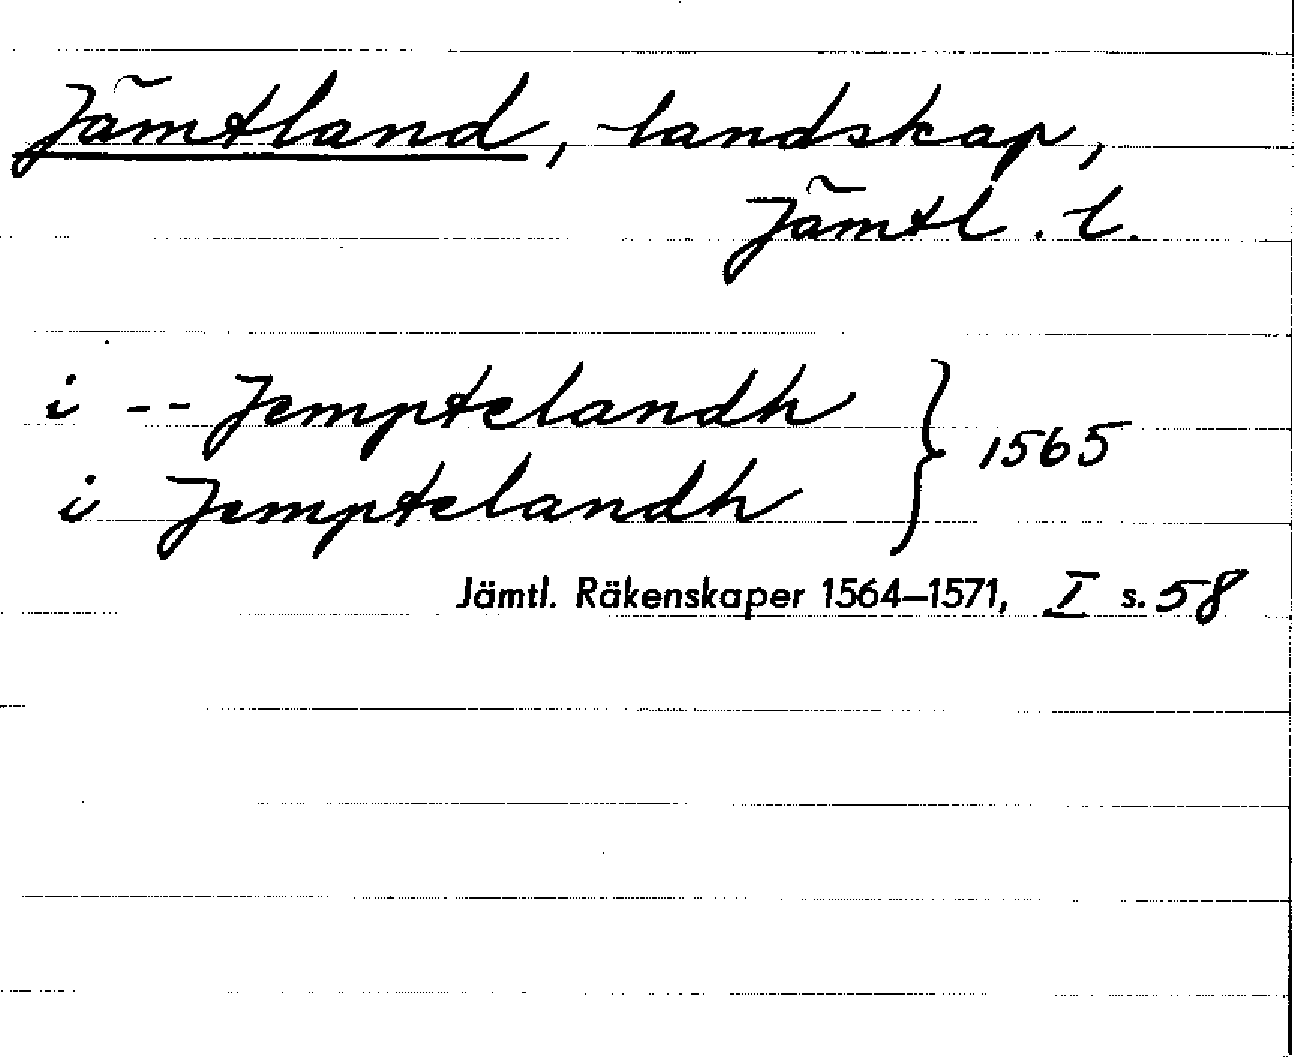 Jämtland, landskap,
Jämtl. l.
i -- Jemptelandh
i Jemptelandh } 1565
Jämtl. Räkenskaper 1564–1571, I s. 58